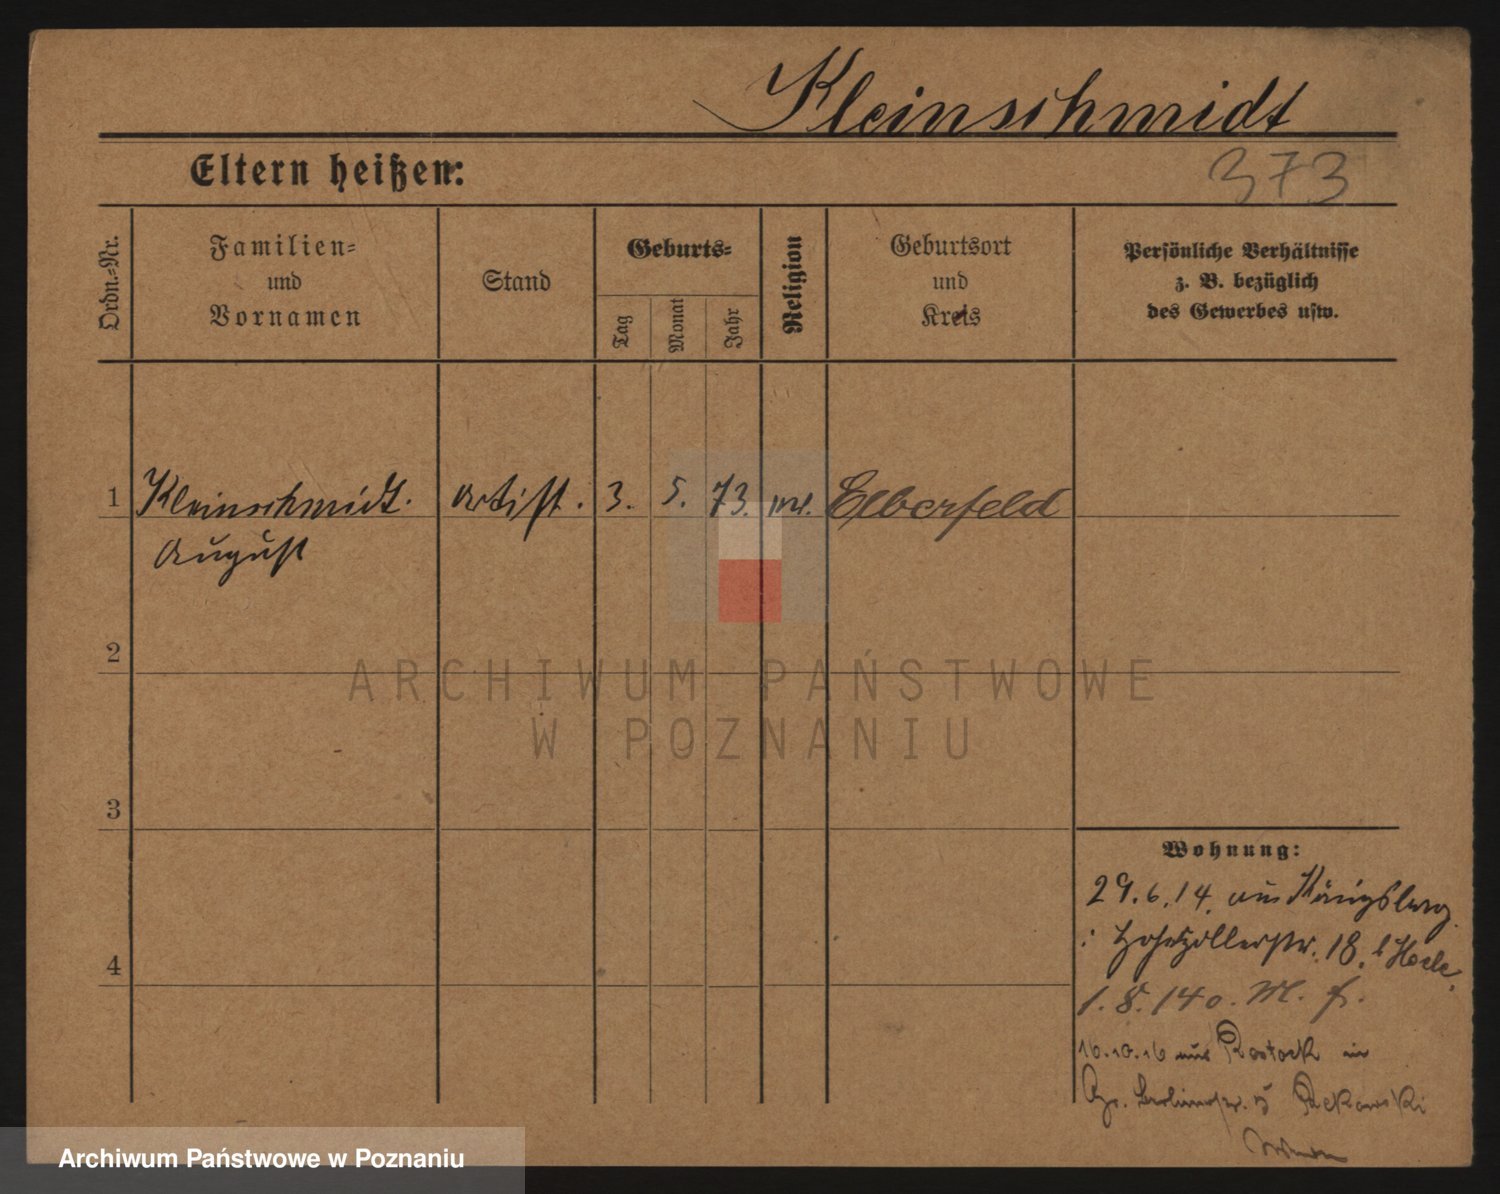 Kleinschmidt
Eltern heißen:
373
Ordn.=Nr.
Familien=
und
Vornamen
Stand
Geburts=
Tag
Monat
Jahr
Religion
Geburtsort
und
Kreis
Persönliche Verhältnisse
z. B. bezüglich
des Gewerbes usw.
1
Kleinschmidt.
August
Artist.
3.
5.
73.
Elberfeld
2
ARCHIWUM PAŃSTWOWE
W POZNANIU
3
4
Wohnung:
29.6.14. aus Königsberg
i Hohenzollerstr. 18.
1.8.14 o. M. f.
16.10.16 aus Rostock in
Berlinerstr. 5 Rekowski
Archiwum Państwowe w Poznaniu